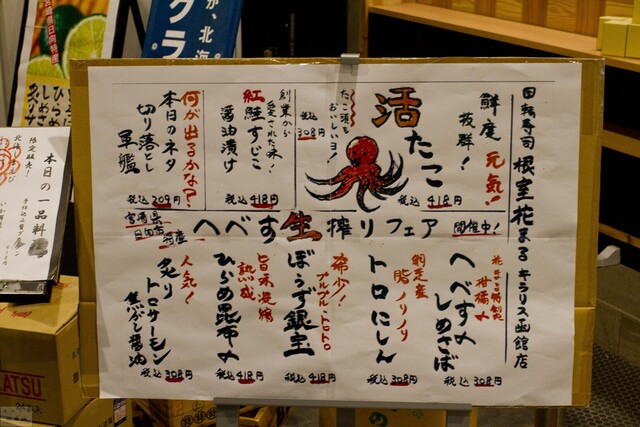 回転寿司 根室花まる キラリス函館店
鮮度
抜群！
元気！
活
たこ
税込 418円
たこ頭も
おいしいョ！
税込 308円
創業から
愛された味！
紅鮭すじこ
醤油漬け
税込 418円
何が出るかな？
本日のネタ
切り落とし
軍艦
税込 209円
宮崎県
日向市
特産
へべす生搾りフェア
開催中！
花まる特製
柑橘〆
へべす〆
しめさば
税込 308円
網走産
脂ノリノリ
トロにしん
税込 308円
希少！
プルプル・トロトロ
ぼうず銀宝
税込 418円
旨味凝縮
熟成
ひらめ昆布〆
税込 418円
人気！
炙り
トロサーモン
焦がし醤油
税込 308円
本日の一品料
限定販売！